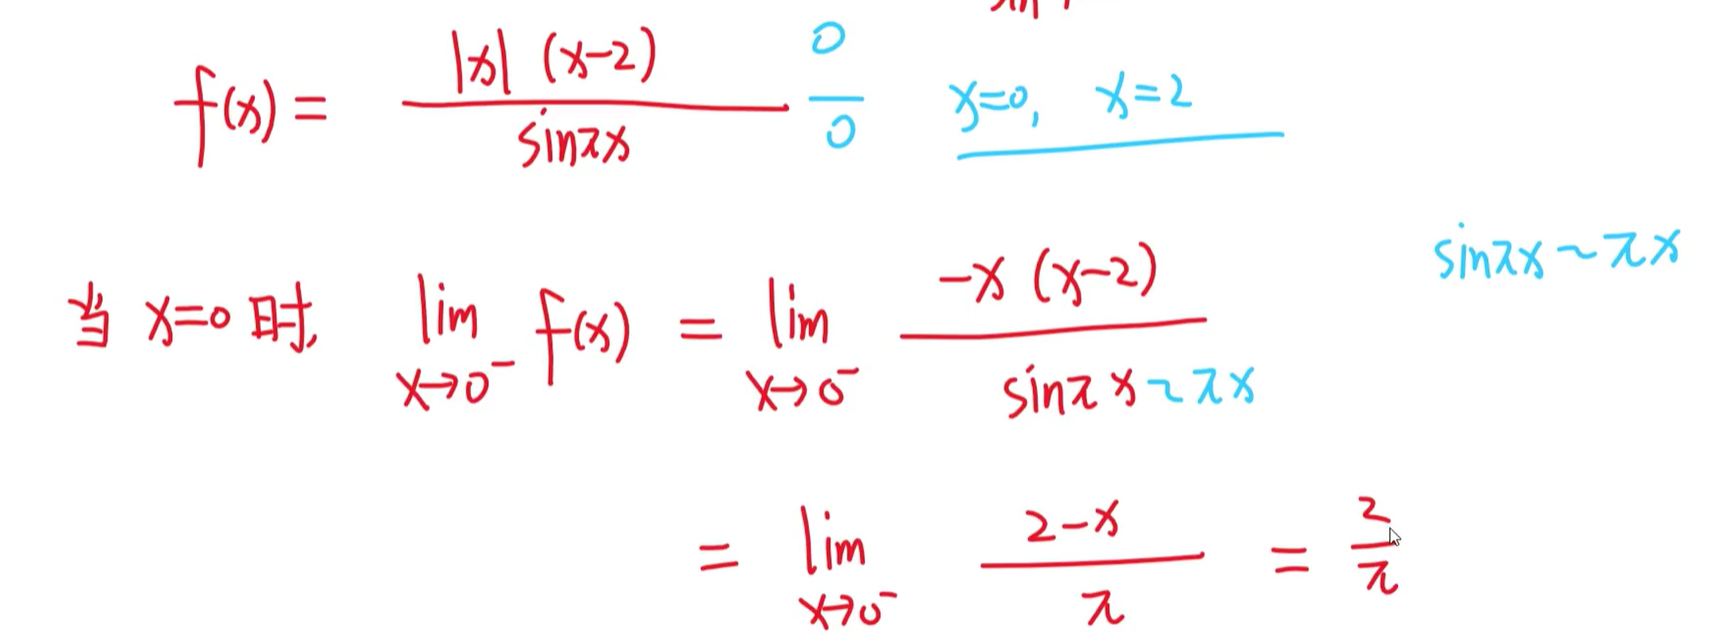 sin
f(x) = |x| (x-2) / sinπx 0/0 x=0, x=2
sinπx ~ πx
当 x=0 时, lim x→0⁻ f(x) = lim x→0⁻ -x (x-2) / sinπx ~ πx
= lim x→0⁻ 2-x / π = 2/π